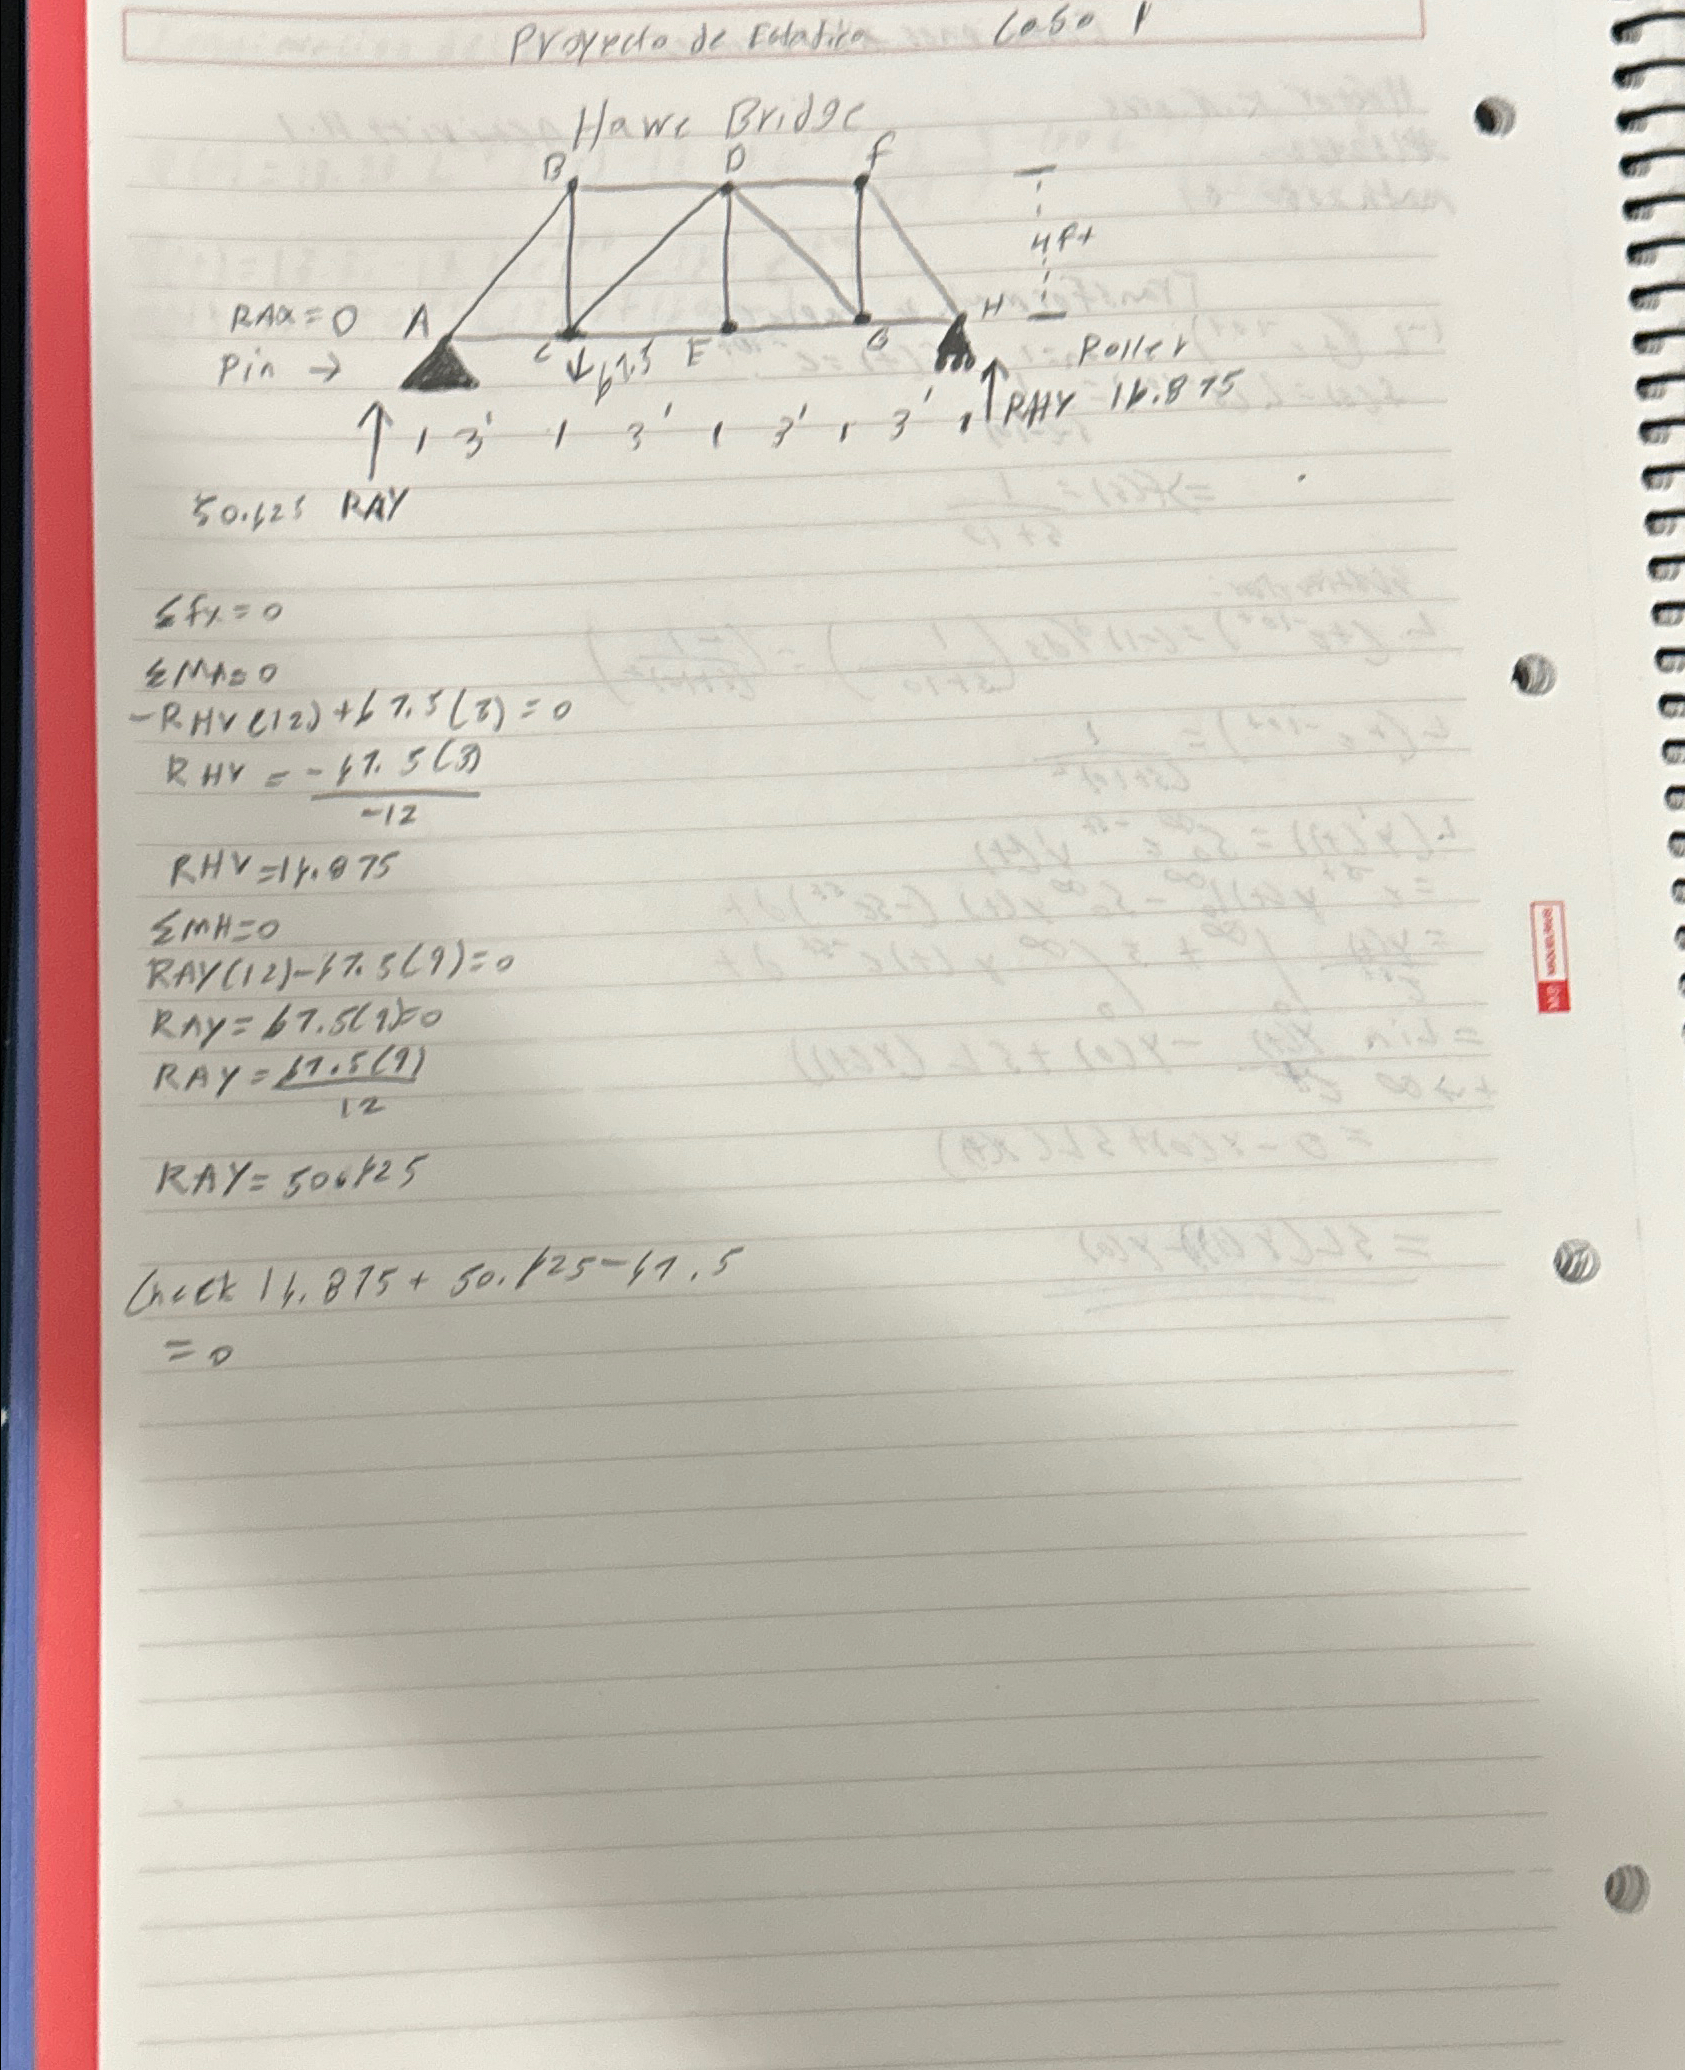 Proyecto de Estatica Caso 1
Hawe Bridge
B D F
4ft
RAX=0 A H
Pin → C ↓67.5 E G Roller
↑ 3' 3' 3' 3' ↑RHY 16.875
50.625 RAY
Σfx=0
ΣMA=0
-RHY(12)+67.5(3)=0
RHY = -67.5(3)
-12
RHY=16.875
ΣMH=0
RAY(12)-67.5(9)=0
RAY=67.5(9)=0
RAY=67.5(9)
12
RAY=50.625
Check 16.875+50.625-67.5
=0